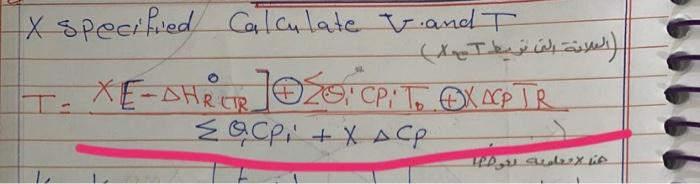 X specified Calculate V and T
(العلاقة التي تربط T مع X)
T = X[-ΔH°R(TR)] ⊕ ΣΘi CPi To ⊕ X ΔCP TR
Σ Θi CPi + X ΔCP